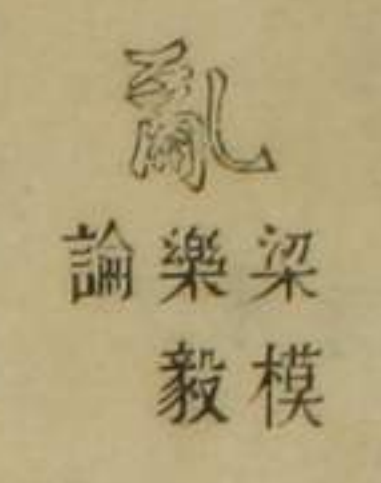 亂
梁模
樂毅
論